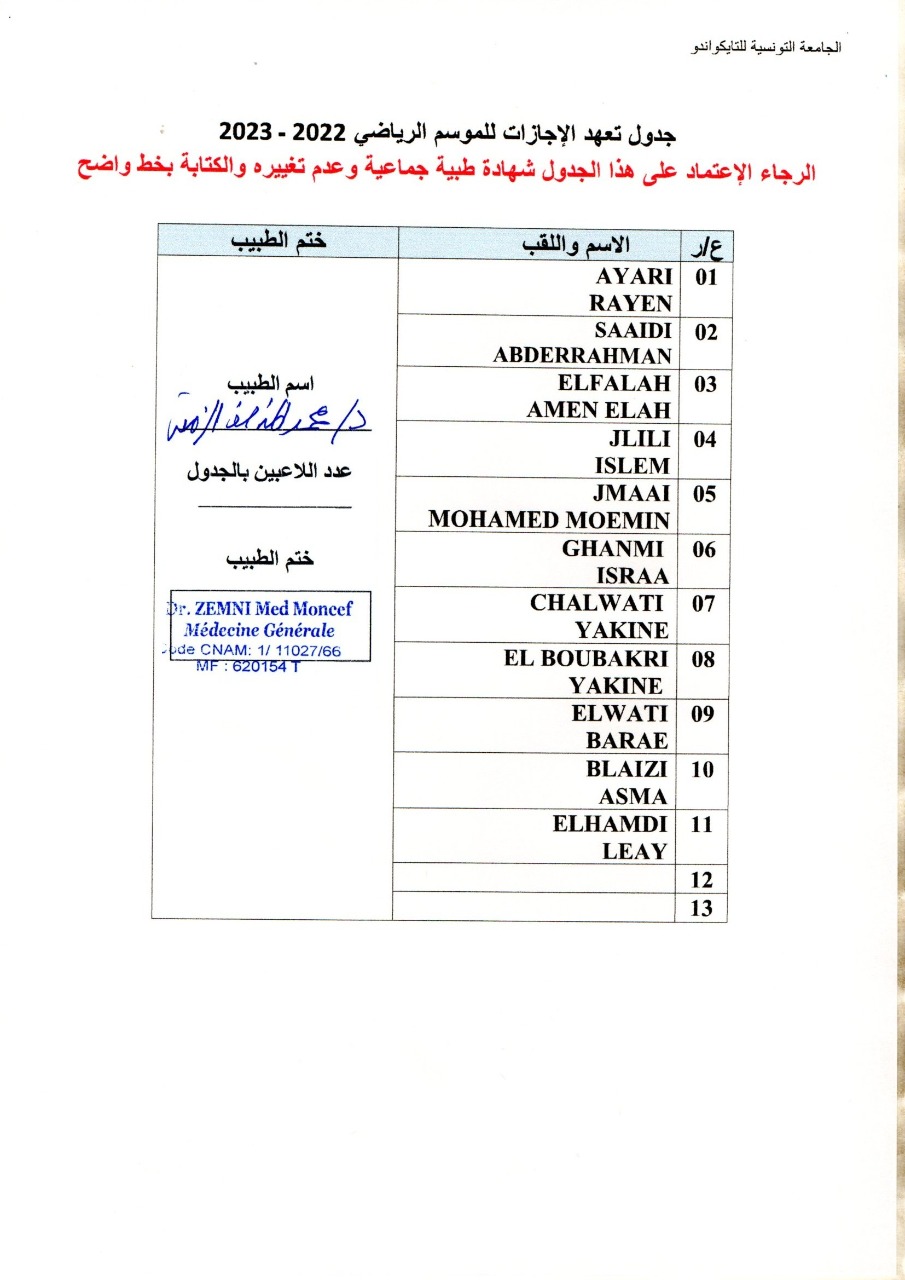 الجامعة التونسية للتايكواندو
جدول تعهد الإجازات للموسم الرياضي 2022 - 2023
الرجاء الإعتماد على هذا الجدول شهادة طبية جماعية وعدم تغييره والكتابة بخط واضح
ع/ر الاسم واللقب ختم الطبيب
01 AYARI
RAYEN
02 SAAIDI
ABDERRAHMAN
03 ELFALAH
AMEN ELAH
04 JLILI
ISLEM
05 JMAAI
MOHAMED MOEMIN
06 GHANMI
ISRAA
07 CHALWATI
YAKINE
08 EL BOUBAKRI
YAKINE
09 ELWATI
BARAE
10 BLAIZI
ASMA
11 ELHAMDI
LEAY
12
13
اسم الطبيب
د/ محمد المنصف الزمني
عدد اللاعبين بالجدول
ختم الطبيب
Dr. ZEMNI Med Moncef
Médecine Générale
Code CNAM: 1/ 11027/66
MF : 620154 T